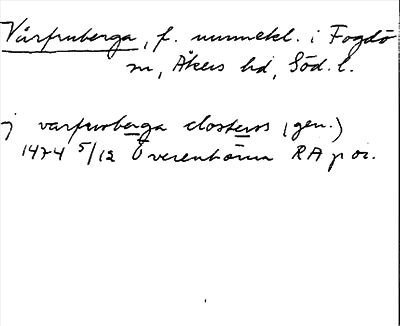 Vårfruberga, f. nunnekl. i Fogdö
sn, Åkers hd, Söd. l.
j varfruoberga closters (gen.)
1474 5/12 Överenhörna RA p or.